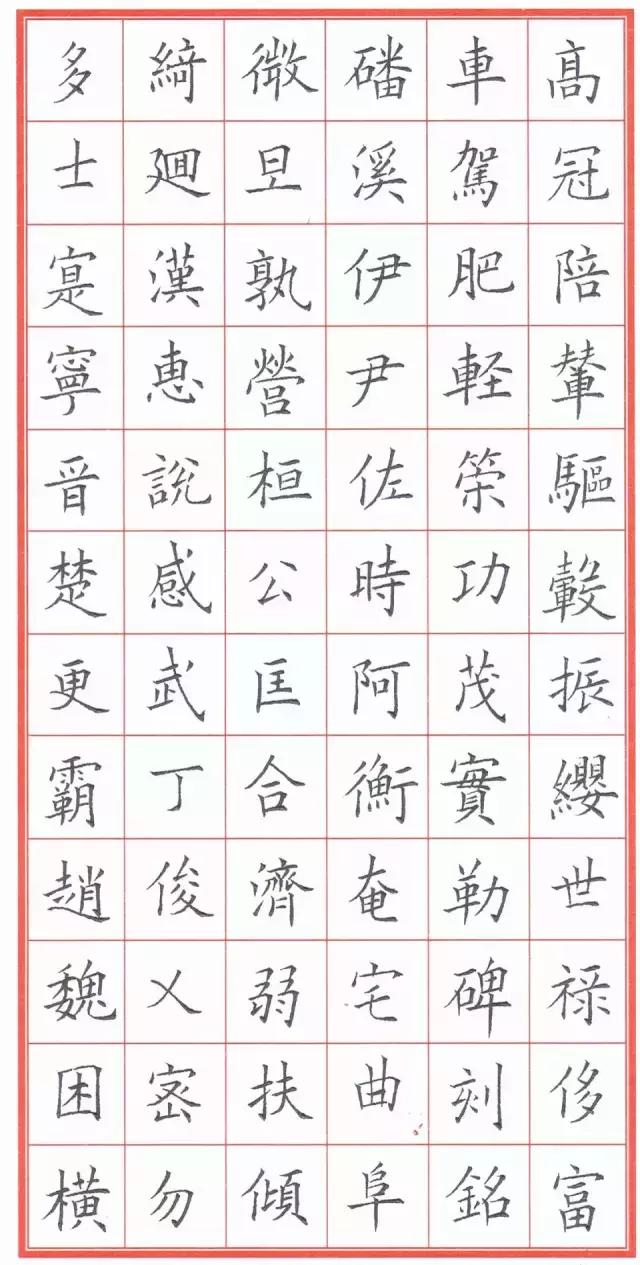 髙冠陪輦驅轂振纓世禄侈富
車駕肥軽策功茂實勒碑刻銘
磻溪伊尹佐時阿衡奄宅曲阜
微旦孰營桓公匡合濟弱扶傾
綺廻漢惠説感武丁俊乂密勿
多士寔寧晋楚更霸趙魏困横